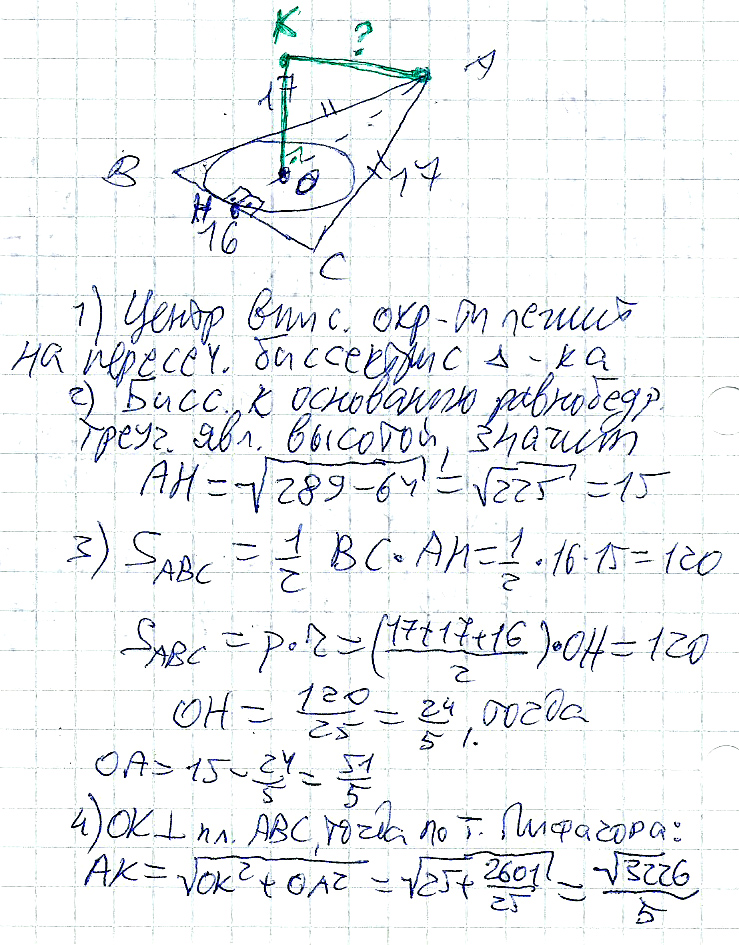 K
?
A
17
B
O
17
H
16
C
1) Центр впис. окр-ти лежит
на пересеч. биссектрис Δ-ка
2) Бисс. к основанию равнобедр.
треуг. явл. высотой, значит
AH = √289-64 = √225 = 15
3) S_ABC = 1/2 BC · AH = 1/2 · 16 · 15 = 120
S_ABC = p · r = (17+17+16 / 2) · OH = 120
OH = 120/25 = 24/5, тогда
OA = 15 - 24/5 = 51/5
4) OK ⊥ пл. ABC, тогда по т. Пифагора:
AK = √OK² + OA² = √25 + 2601/25 = √3226/5